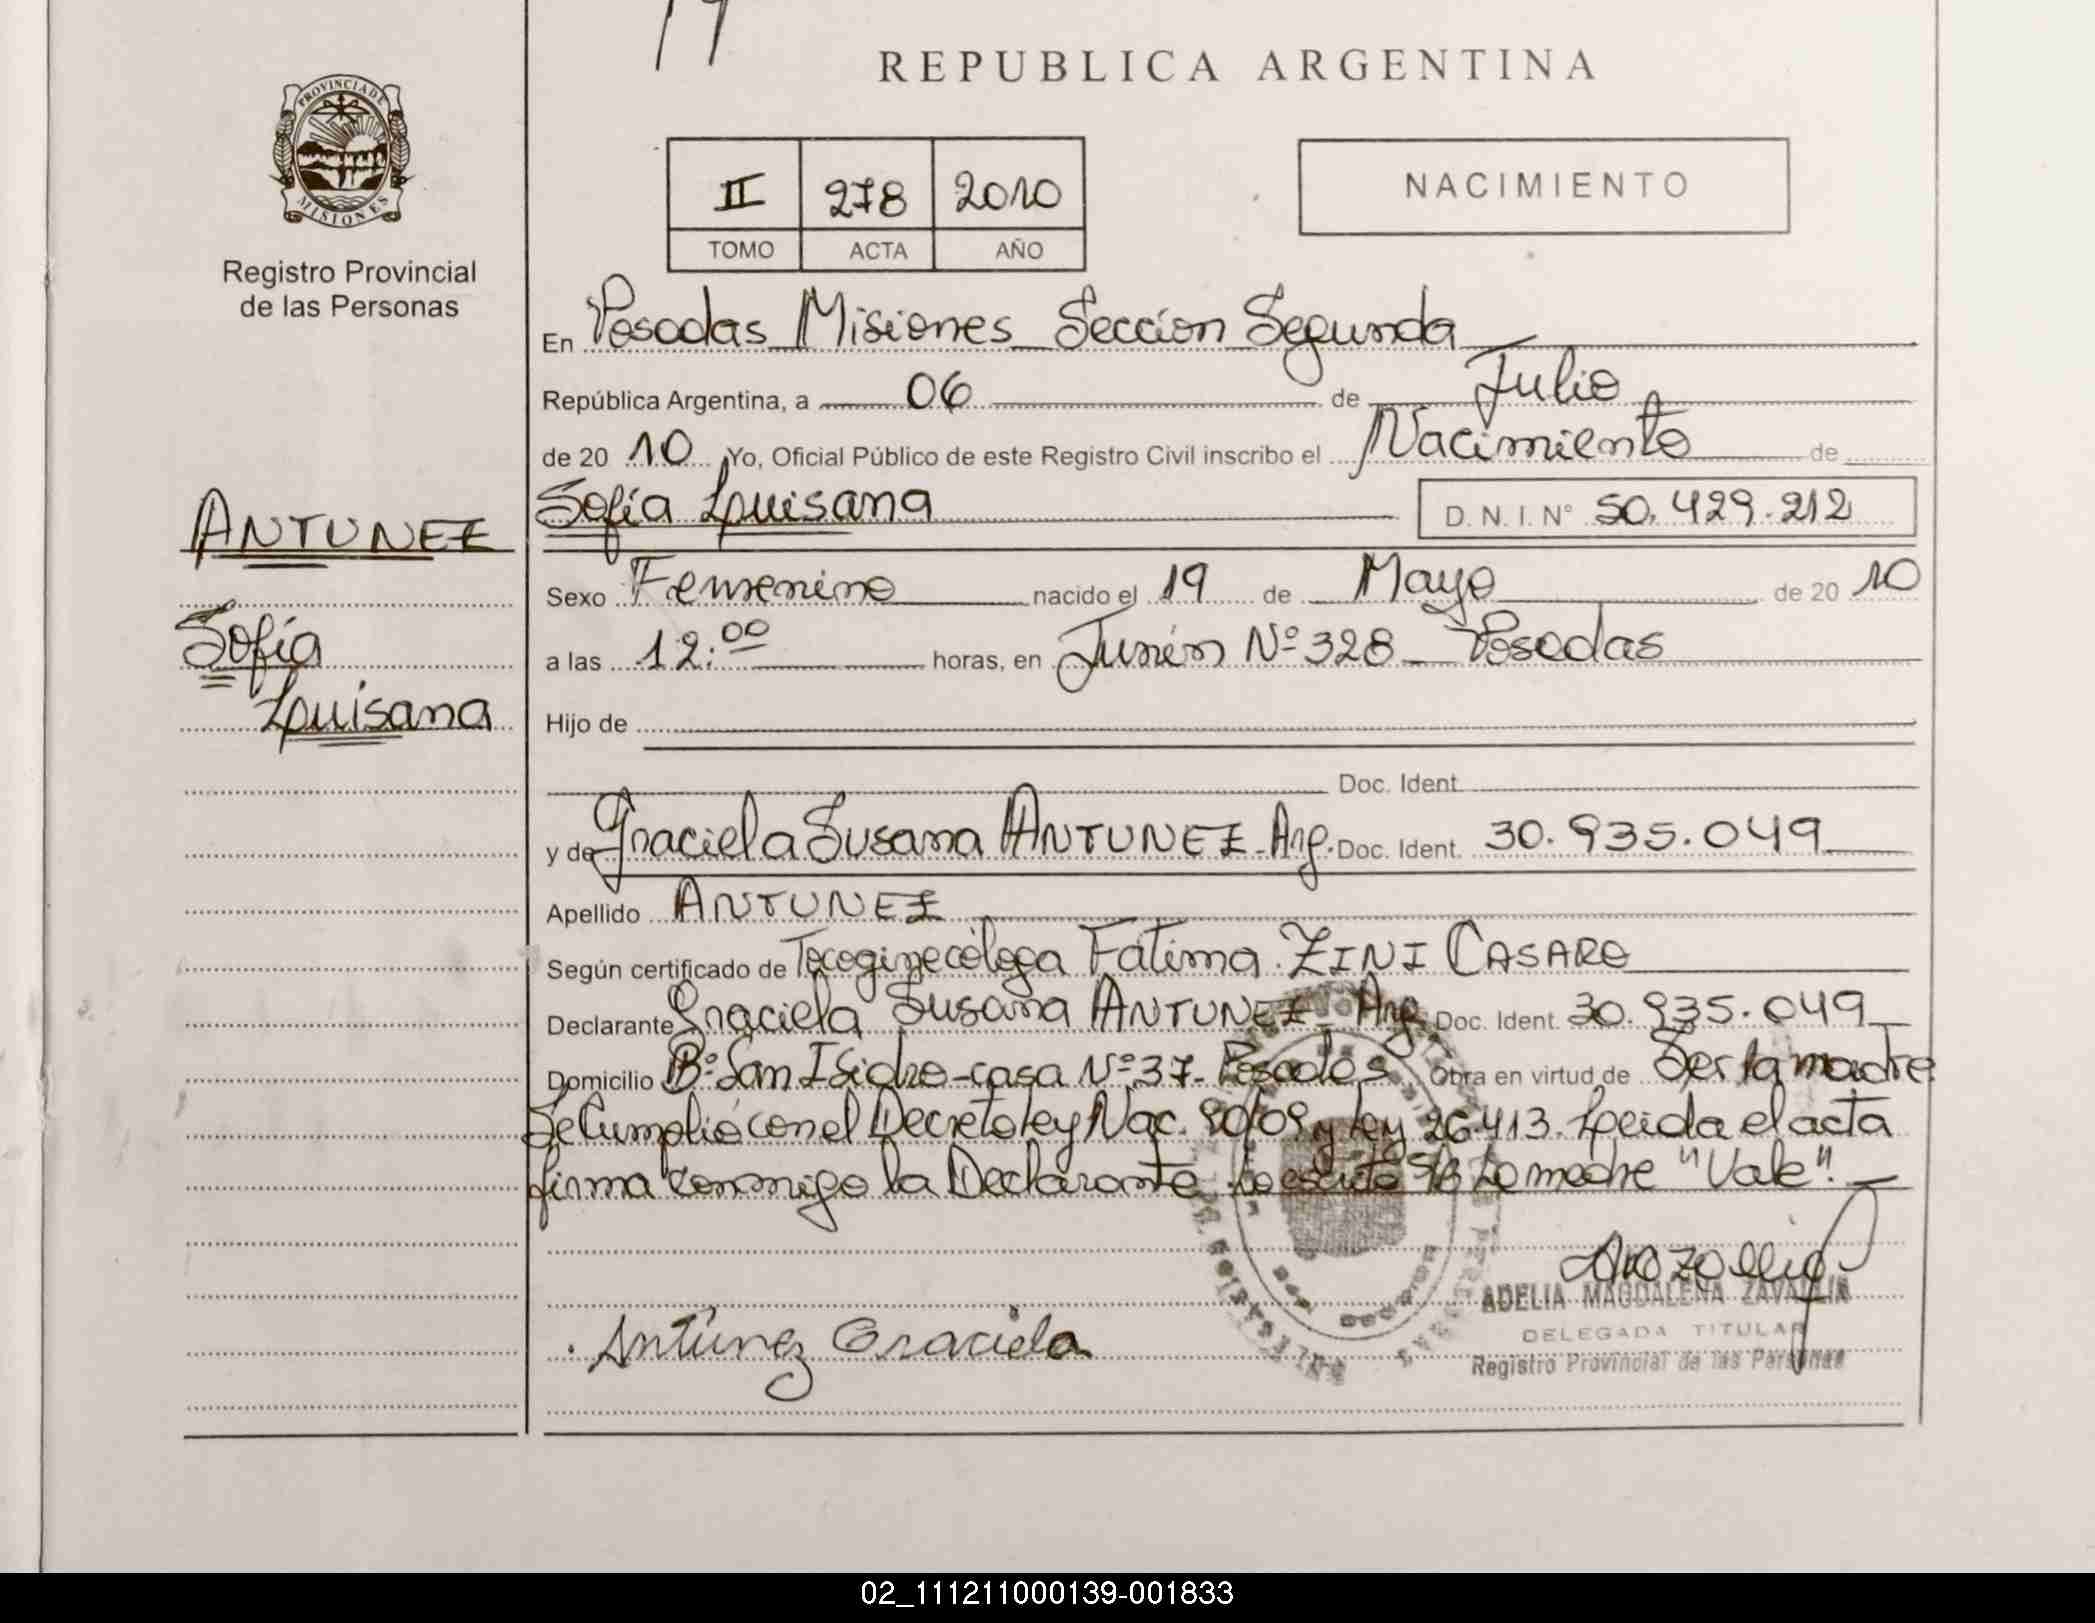 REPUBLICA ARGENTINA
PROVINCIA DE
MISIONES
Registro Provincial
de las Personas
II 278 2010
TOMO ACTA AÑO
NACIMIENTO
En Posadas Misiones Seccíon Segunda
República Argentina, a 06 de Julio
de 20 10 Yo, Oficial Público de este Registro Civil inscribo el Nacimiento de
ANTUNEZ
Sofía Luisana D. N. I. N° 50.429.212
Sexo Femenino nacido el 19 de Mayo de 20 10
Sofía
a las 12:00 horas, en Junín Nº 328 Posadas
Luisana
Hijo de
Doc. Ident.
y de Graciela Susana ANTUNEZ Arg. Doc. Ident. 30.935.049
Apellido ANTUNEZ
Según certificado de Tocoginecóloga Fatima ZINI CASARO
Declarante Graciela Susana ANTUNEZ Arg. Doc. Ident. 30.935.049
Domicilio Bº San Isidro-casa Nº 37- Posadas Obra en virtud de Ser la madre
Se Cumplió con el Decreto ley Nac. 90/09 y Ley 26413. Leida el acta
firma conmigo la Declarante Lo escrito S/B La madre "Vale".
ADELIA MAGDALENA ZAVALLIN
DELEGADA TITULAR
Registro Provincial de las Personas
Antúnez Graciela
02_111211000139-001833